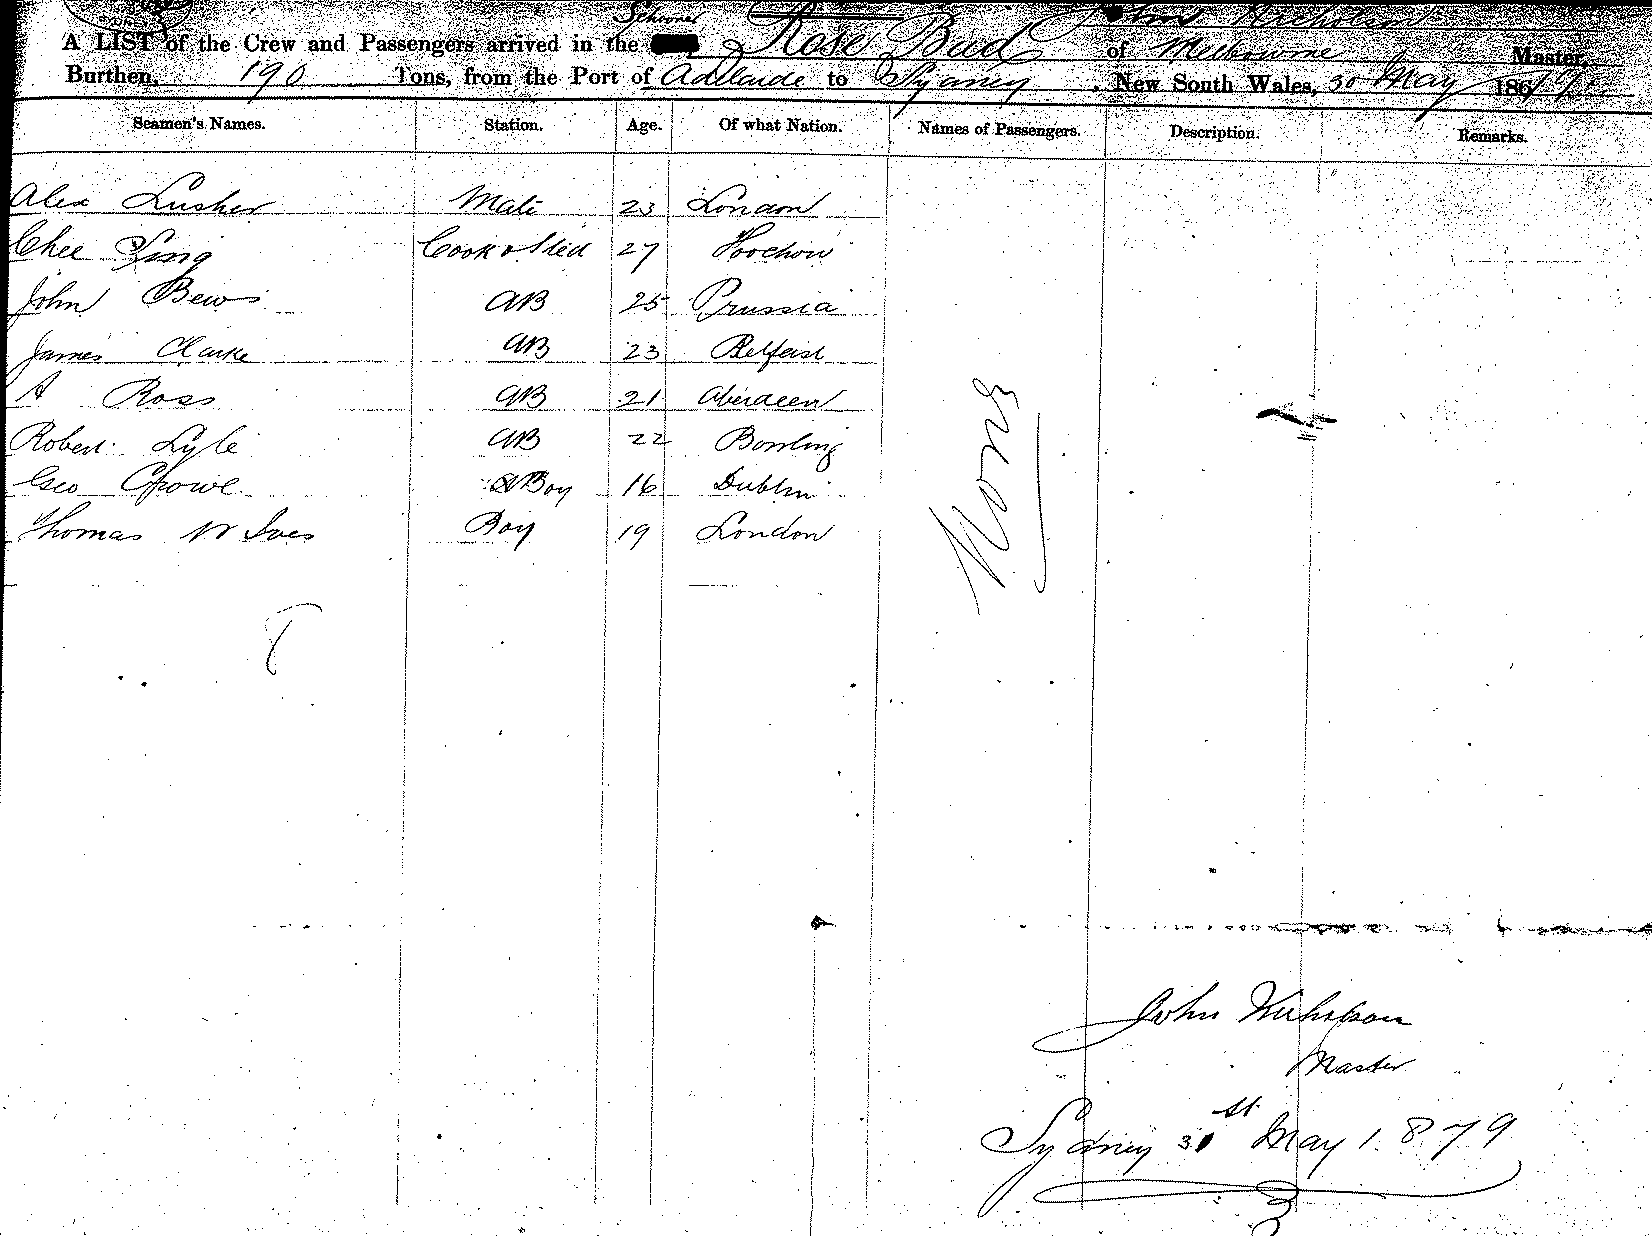 Schooner
A LIST of the Crew and Passengers arrived in the Rose Bud of Melbourne John Nicholson Master,
Burthen, 190 Tons, from the Port of Adelaide to Sydney, New South Wales, 30 May 1879
Seamen's Names. Station. Age. Of what Nation. Names of Passengers. Description. Remarks.
Alex Lusher Mate 23 London
Chee Sing Cook & Sted 27 Foochow
John Bews AB 25 Prussia
James Clarke AB 23 Belfast
A Ross AB 21 Aberdeen
Robert Lyle AB 22 Bowling
Geo Crowe Boy 16 Dublin
Thomas W Ives Boy 19 London
None
8
John Nicholson
Master
Sydney 31st May 1879